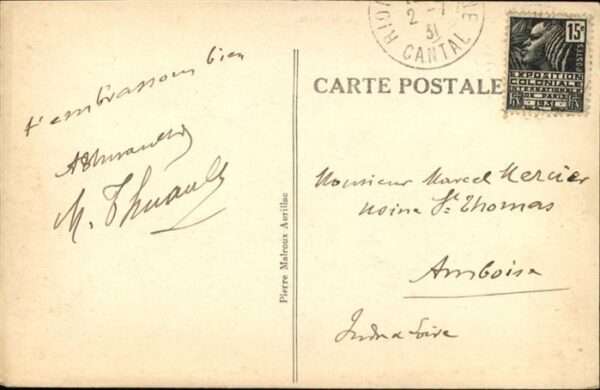 t'embrassons bien
AThuault
M. Thuault
Pierre Malroux Aurillac
CARTE POSTALE
31
CANTAL
15c
POSTES
EXPOSITION
COLONIALE
INTERNATIONALE
DE PARIS
1931
Monsieur Marcel Mercier
St Thomas
Amboise
Indre & Loire